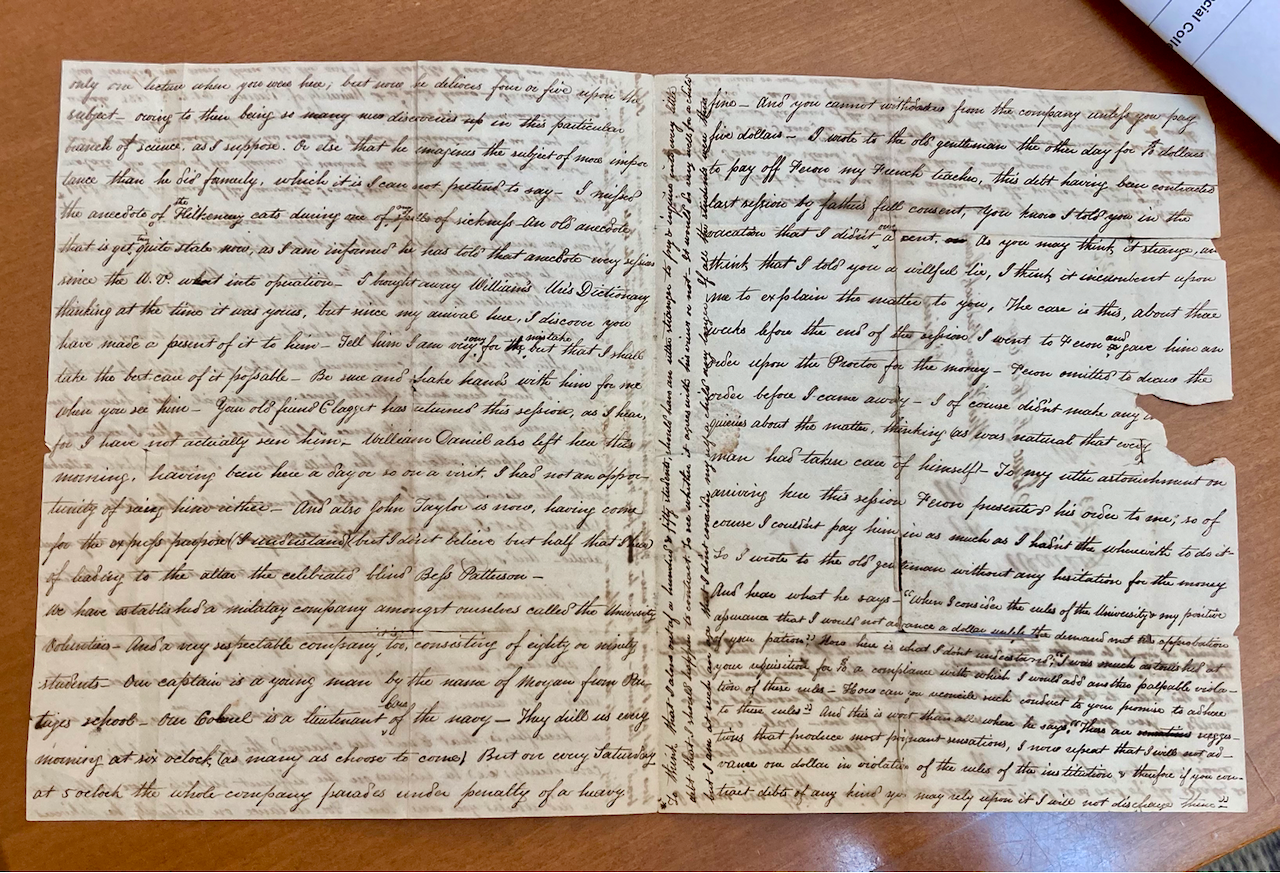 only one lecture when you were here; but now he delivers four or five upon the
subject – owing to their being so many new discoveries up in this particular
branch of science, as I suppose. Or else that he imagines the subject of more impor
tance than he did formerly, which it is I can not pretend to say – I missed
the anecdote of the Kilkenny cats during one of my spells of sickness – An old anecdote
that is getting quite stale now, as I am informed he has told that anecdote every session
since the U.V. went into operation – I brought away William's Dictionary
thinking at the time it was yours, but since my arrival here, I discover you
have made a present of it to him – Tell him I am very sorry for the mistake, but that I shall
take the best care of it possable – Be sure and shake hands with him for me
when you see him – Your old friend Clagget has returned this session, as I hear,
for I have not actually seen him – William Daniel also left here this
morning, having been here a day or so on a visit. I had not an oppor-
tunity of seeing him either – And also John Taylor is now, having come
for the express purpose (I understand) (but I don't believe but half that I hear)
of leading to the altar the celebrated blind Bess Patterson –
We have established a militay company amongst ourselves called the University
Volunteers – And a very respectable company it is too, consisting of eighty or ninety
students – Our captain is a young man by the name of Mogan from Par
triges school – Our Colonel is a lieutenant of the navy – They drill us every
morning at six oclock (as many as choose to come) But on every Saturday
at 5 oclock the whole company parades under penalty of a heavy
fine – And you cannot withdraw from the company unless you pay
five dollars – I wrote to the old gentleman the other day for dollars
to pay off Feron my French teacher, this debt having been contracted
last session by father's full consent, You know I told you in the
vacation that I didn't owe a cent. As you may think it strange, an
think that I told you a willful lie, I think it incumbent upon
me to explain the matter to you, The case is this, about three
weeks before the end of the session, I went to Feron and gave him an
order upon the Proctor for the money – Feron omitted to draw the
order before I came away – I of course didn't make any
quieries about the matter, thinking (as was natural that every
man had taken care of himself – To my utter astonishment on
arriving here this session Feron presented his order to me; so of
course I couldn't pay him in as much as I hadn't the wherewith to do it –
So I wrote to the old gentleman without any hesitation for the money
And hear what he says – "When I consider the rules of the University & my positive
assurance that I would not advance a dollar unless the demand met the approbation
of your patron." Now here is what I don't understand "I was much astonished at
your requisition for a compliance with which I would add another palpable viola-
tion of these rules – How can you reconcile such conduct to your promise to adhere
to these rules" And this is worse than all where he says, "These are sugges-
tions that produce most poignant sensations, I now repeat that I will not ad-
vance one dollar in violation of the rules of the institution & therefore if you con-
tract debts of any kind you may rely upon it I will not discharge them"
To think that I alone out of a hundred & fifty students, should have an utter stranger to pry & inquire into my little